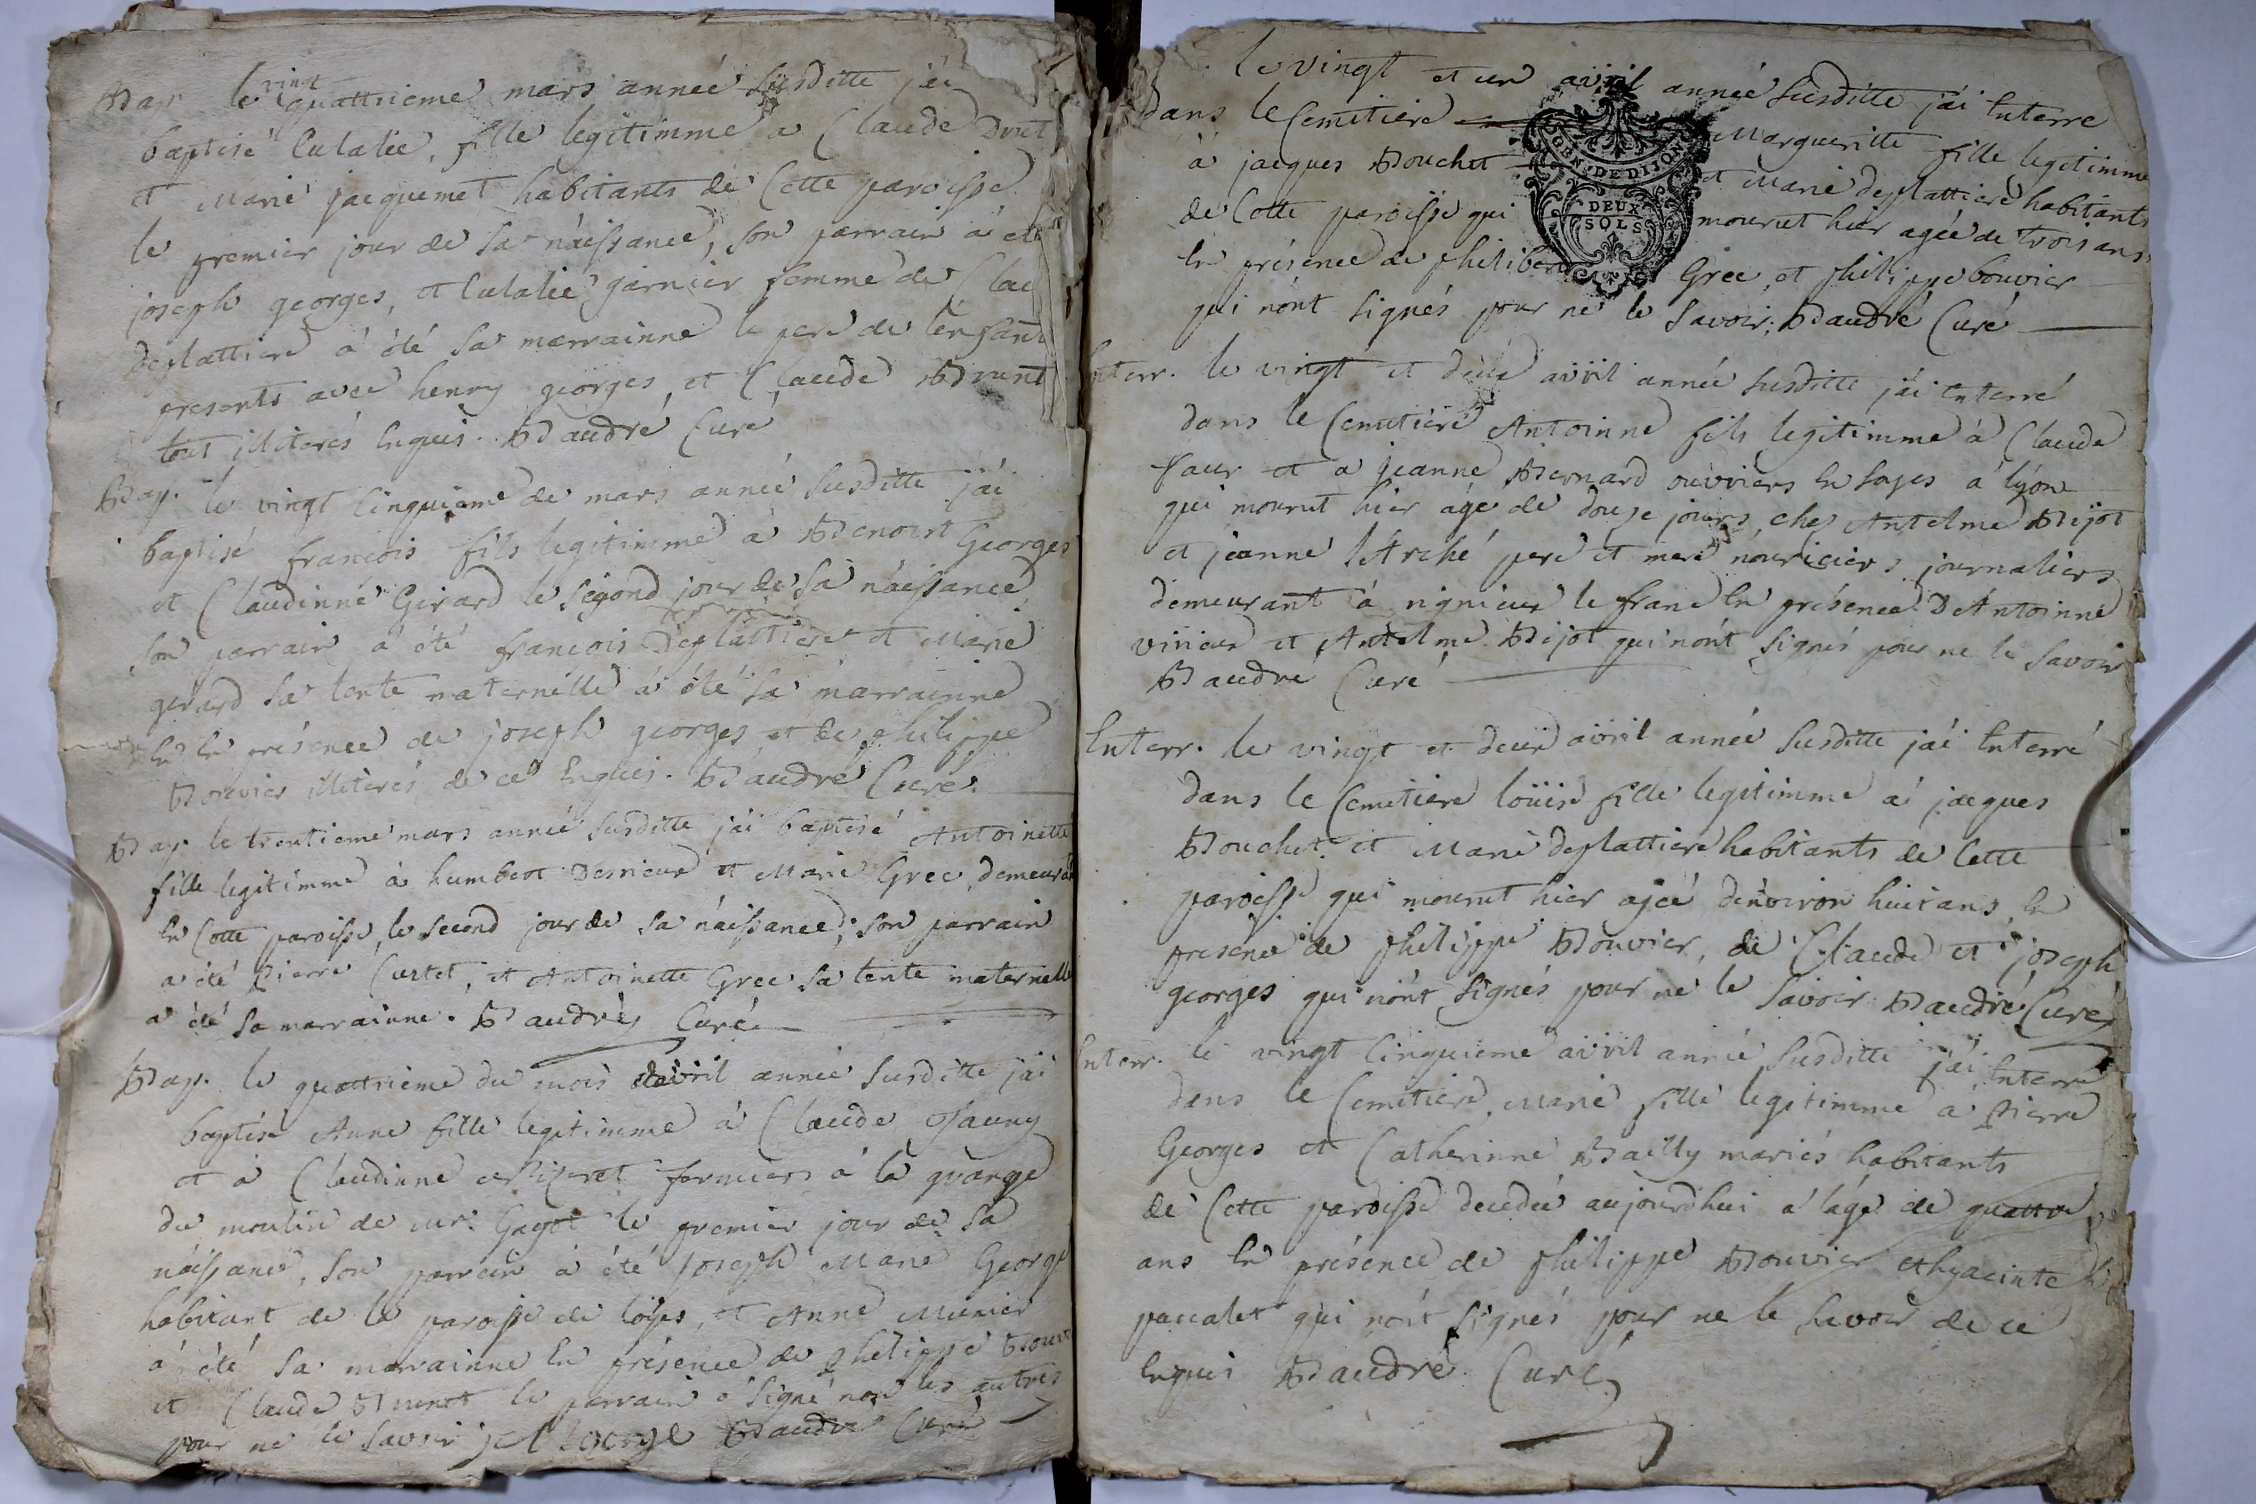 Bap. le vingt quattrieme mars année susditte j'ai
baptisé Eulalie, fille legitimme a Claude Druet
et Marie jacquemet habitants de Cette paroisse
le premier jour de sa náissance, son parrain à été
joseph georges, et Eulalie garnier femme de Clau
deplattiere à été sa marrainne le pere de lenfant
presents avec henry georges, et Claude Brunet
tout illiterés Enquis. Baudré Curé
Bap. le vingt Cinquieme de mars année susditte j'ai
baptisé francois fils legitimme à Benoist Georges
et Claudinne Girard le segond jour de sa náissance
son parrain a été francois Deplattiere et Marie
gerard sa tente maternelle a été sa marrainne
En la présence de joseph georges et de philippe
Bouvier illiterés de ce Enquis. Baudré Curé.
Bap. le trentieme mars année susditte j'ai baptisé Antoinette
fille legitimme à humbert et Marie Grec, demeurant
En Cette paroisse, le second jour de sa náissance; son parrain
a été Pierre Curtet, et Antoinette Grec sa tente maternelle
a été sa marrainne. Baudré, Curé.
Bap. le quattrieme du mois d'avril année susditte j'ai
baptisé Anne fille legitimme à Claude
et à Claudinne fermiers à la grange
du moulin de mr. Gagot le premier jour de sa
náissance, son parrain à été joseph Marie George
habitant de la paroisse de loyes, et Anne Munier
à été sa marrainne En présence de philippe Bouv
et Claude Brunet le parrain à signé non les autres
pour ne le savoir j m George Baudré Curé
le vingt et un avril année susditte j'ai Enterre
dans le Cemitiere Margueritte fille legitimme
à jacques Bouchet et Marie deplattiere habitants
de Cette paroisse qui mourut hier agée de trois ans
En présence de philibert Grec, et philippe bouvier
qui n'ont signés pour ne le savoir; Baudré Curé
GEN. DE DIJON
DEUX
SOLS
Enterr. le vingt et deux avril année susditte j'ai Enterré
dans le Cemitiere Antoinne fils legitimme à Claude
faur et a jeanne Bernard ouvriers En soyes a lyon
qui mourut hier agé de douze jours, chez Antelme Bijot
et jeanne l'Arché pere et mere nouriciers journaliers
demeurant à rignieux le franc En présence D'Antoinne
virieux et Antelme Bijot qui n'ont signés pour ne le savoir
Baudré Curé
Enterr. le vingt et deux avril année susditte j'ai Enterré
dans le Cemitiere loüise fille legitimme à jacques
Bouchet et Marie deplattiere habitants de Cette
paroisse qui mourut hier agée dénviron huit ans En
presence de philippe Bouvier, de Claude et joseph
georges qui n'ont signés pour ne le savoir Baudré Curé
Enterr. le vingt Cinquieme avril année susditte j'ai Enterré
dans le Cemitiere, Marie fille legitimme a Pierre
Georges et Catherinne Bailly mariés habitants
de Cette paroisse decedée aujourdhui a lagé de quattre
ans En présence de philippe Bouvier et hyacinte
pacalet qui n'ont signés pour ne le savoir de ce
Enquis Baudré Curé